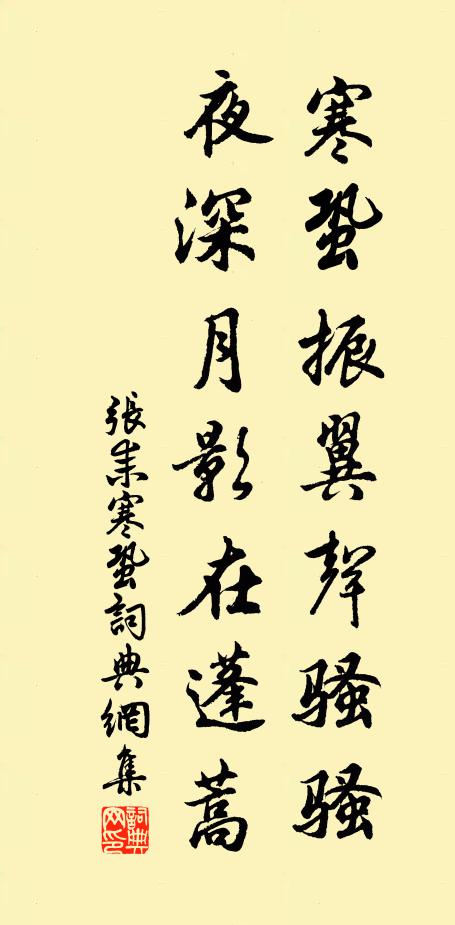 寒蛩振翼聲騷騷
夜深月影在蓬蒿
張耒寒蛩詞典網集
詞典網印